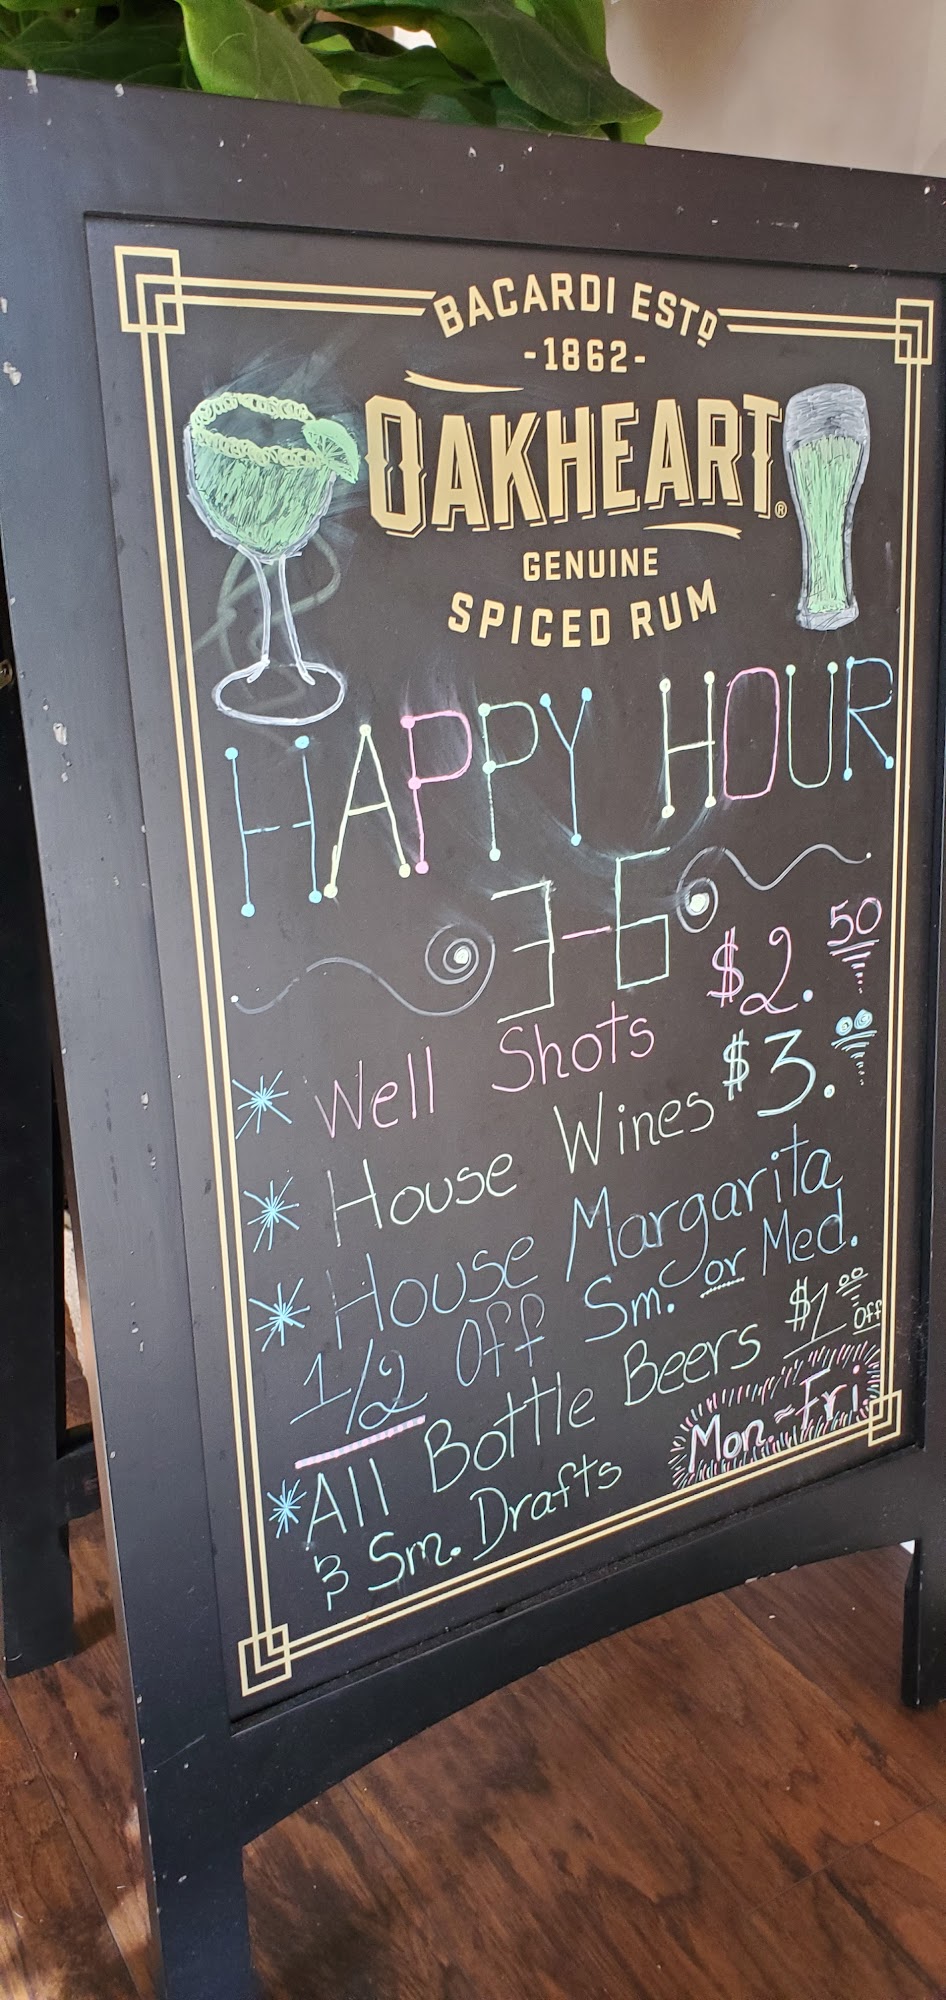 BACARDI ESTD
-1862-
OAKHEART®
GENUINE
SPICED RUM
HAPPY HOUR
3-6
* Well Shots $2.50
* House Wines $3.00
* House Margarita
1/2 Off Sm. or Med.
* All Bottle Beers $1.00 Off
& Sm. Drafts
Mon-Fri